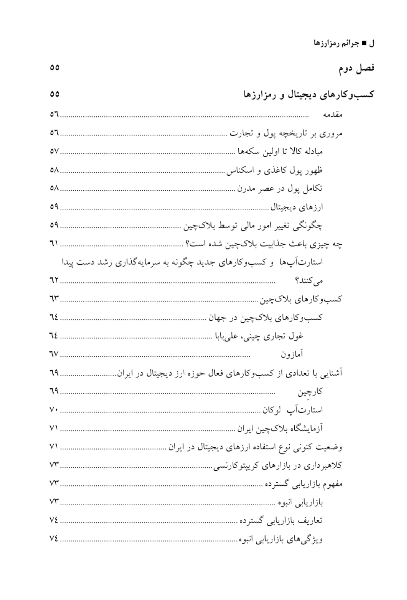 ل ■ جرائم رمزارزها
فصل دوم ۵۵
کسب‌وکارهای دیجیتال و رمزارزها ۵۵
مقدمه ۵۶
مروری بر تاریخچه پول و تجارت ۵۶
مبادله کالا تا اولین سکه‌ها ۵۷
ظهور پول کاغذی و اسکناس ۵۸
تکامل پول در عصر مدرن ۵۸
ارزهای دیجیتال ۵۹
چگونگی تغییر امور مالی توسط بلاک‌چین ۵۹
چه چیزی باعث جذابیت بلاک‌چین شده است؟ ۶۱
استارت‌آپ‌ها و کسب‌وکارهای جدید چگونه به سرمایه‌گذاری رشد دست پیدا
می‌کنند؟ ۶۲
کسب‌وکارهای بلاک‌چین ۶۳
کسب‌وکارهای بلاک‌چین در جهان ۶۴
غول تجاری چینی، علی‌بابا ۶۴
آمازون ۶۷
آشنایی با تعدادی از کسب‌وکارهای فعال حوزه ارز دیجیتال در ایران ۶۹
کارچین ۶۹
استارت‌آپ لوکان ۷۰
آزمایشگاه بلاک‌چین ایران ۷۱
وضعیت کنونی نوع استفاده ارزهای دیجیتال در ایران ۷۱
کلاهبرداری در بازارهای کریپتوکارنسی ۷۳
مفهوم بازاریابی گسترده ۷۳
بازاریابی انبوه ۷۳
تعاریف بازاریابی گسترده ۷۴
ویژگی‌های بازاریابی انبوه ۷۴